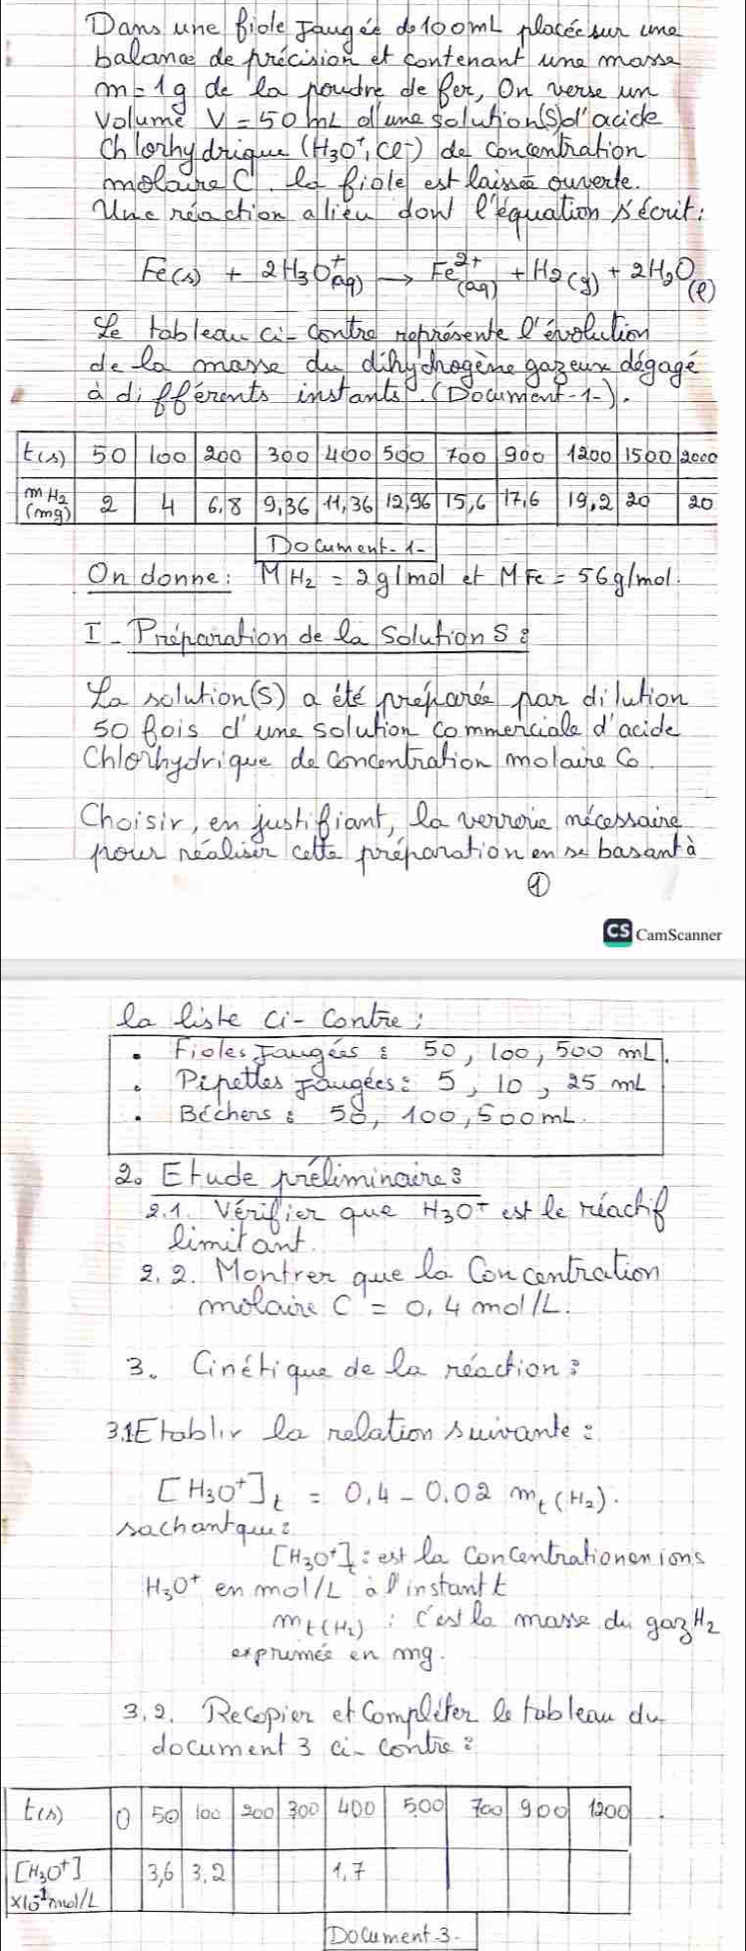 Dans une fiole jaugée de 100mL placée sur une
balance de précision et contenant une masse
m = 1g de la poudre de fer, On verse un
Volume V = 50 mL d'une solution(S) d'acide
Chlorhydrique (H₃O⁺, Cl⁻) de concentration
molaire C. La fiole est laissée ouverte.
Une réaction a lieu dont l'équation s'écrit:
Fe(s) + 2H₃O⁺(aq) → Fe²⁺(aq) + H₂(g) + 2H₂O(l)
Le tableau ci-contre représente l'évolution
de la masse du dihydrogène gazeux dégagé
à différents instants. (Document-1-).
t(s) 50 100 200 300 400 500 700 900 1200 1500 2000
mH₂ (mg) 2 4 6,8 9,36 11,36 12,96 15,6 17,6 19,2 20 20
Document-1-
On donne: MH₂ = 2g/mol et MFe = 56g/mol.
I - Préparation de la Solution S:
La solution(S) a été préparée par dilution
50 fois d'une solution commerciale d'acide
Chlorhydrique de concentration molaire C₀.
Choisir, en justifiant, la verrerie nécessaire
pour réaliser cette préparation en se basant à
①
CS CamScanner
la liste ci-contre:
• Fioles Jaugées: 50, 100, 500 mL.
• Pipettes jaugées: 5, 10, 25 mL
• Béchers: 50, 100, 500mL.
2. Etude préliminaire:
2.1. Vérifier que H₃O⁺ est le réactif
limitant.
2.2. Montrer que la Concentration
molaire C = 0,4 mol/L.
3. Cinétique de la réaction:
3.1 Etablir la relation suivante:
[H₃O⁺]t = 0,4 - 0.02 mt(H₂).
sachant que:
[H₃O⁺]t: est la Concentration en ions
H₃O⁺ en mol/L à l'instant t
mt(H₂) : C'est la masse du gaz H₂
exprimée en mg.
3.2. Recopier et Compléter le tableau du
document 3 ci-contre:
t(s) 0 50 100 200 300 400 500 700 900 1200
[H₃O⁺] ×10⁻¹mol/L 3,6 3,2 1,7
Document-3-